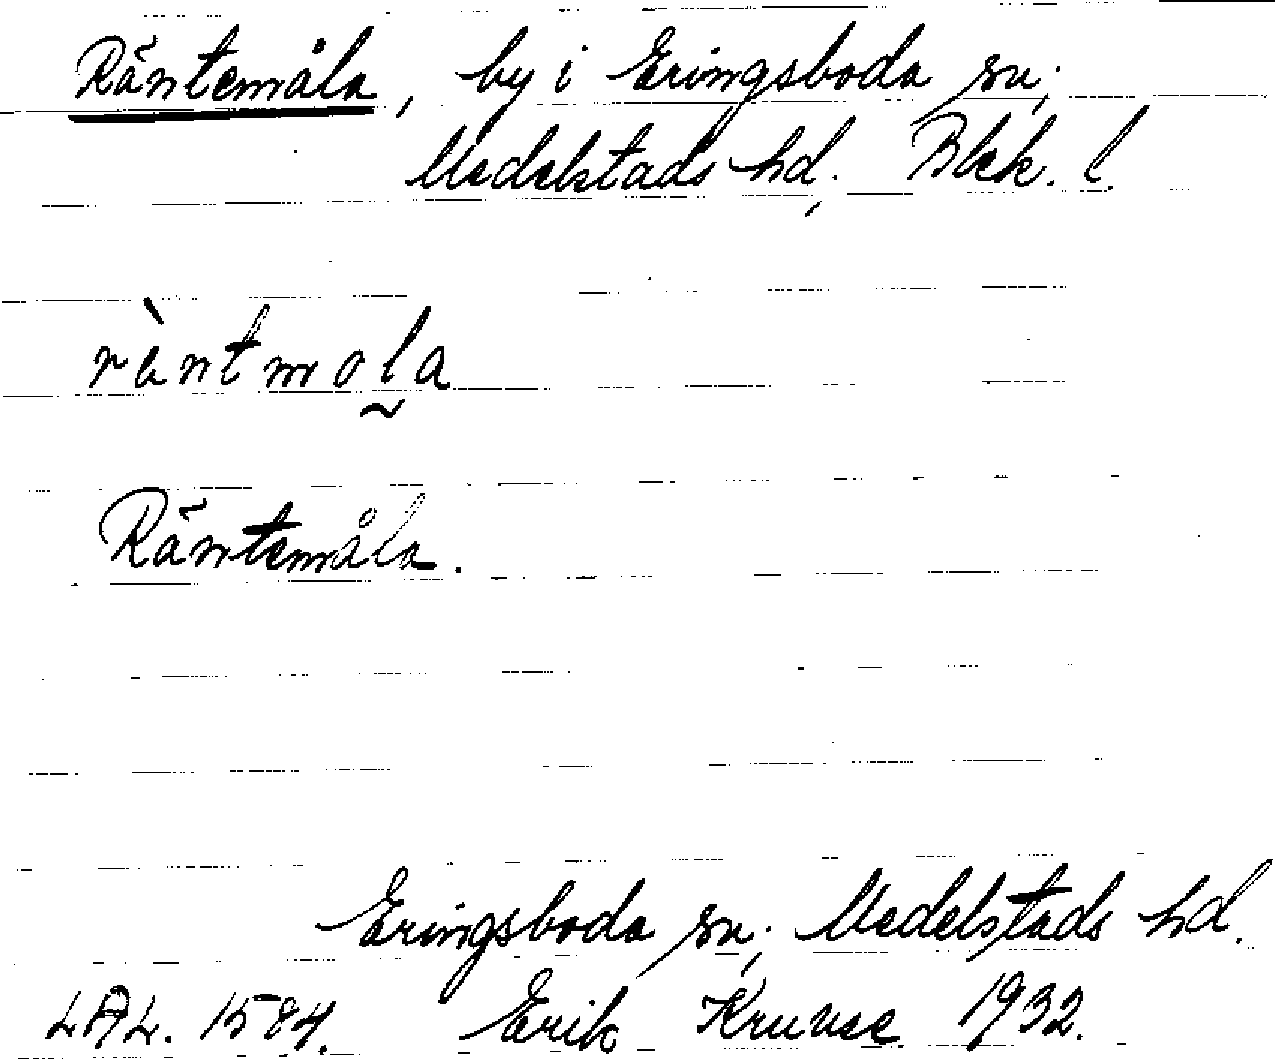 Räntemåla, by i Eringsboda sn;
Medelstads hd, Blek. l.
rὰntmola̰
Räntemåla.
Eringsboda sn; Medelstads hd.
LAL. 1584. Erik Kruuse 1932.